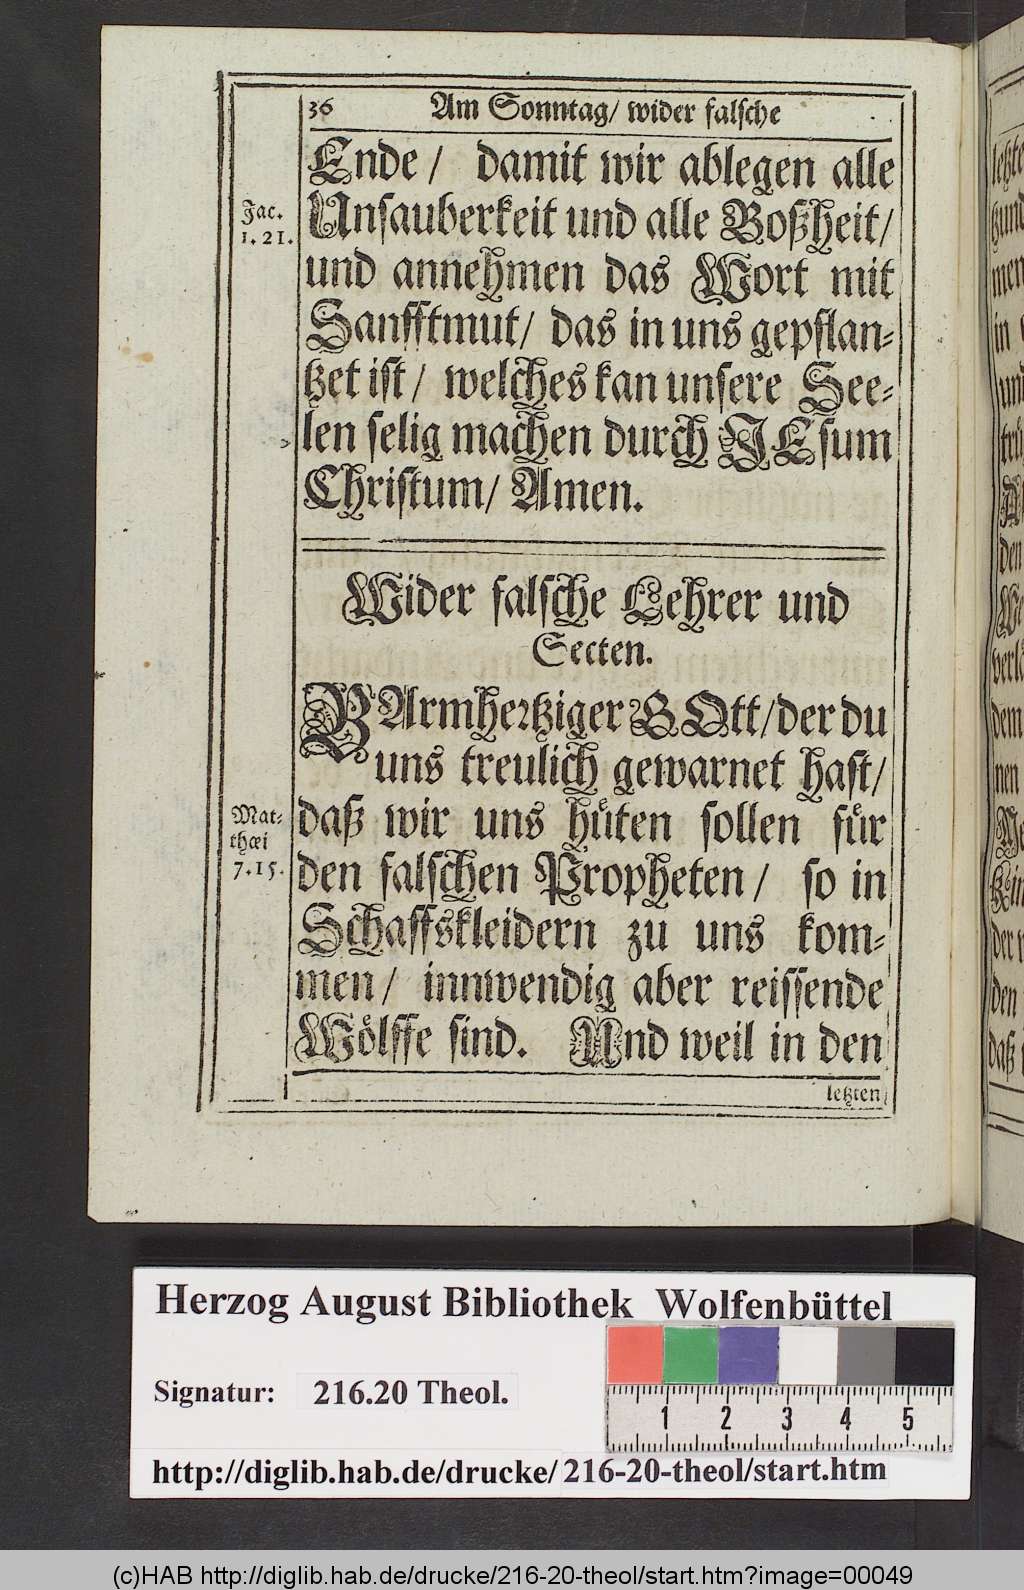 36 Am Sonntag/ wider falsche
Ende/ damit wir ablegen alle
Jac.
1. 21.
Unsauberkeit und alle Boßheit/
und annehmen das Wort mit
Sanfftmut/ das in uns gepflan-
tzet ist/ welches kan unsere See-
len selig machen durch JEsum
Christum/ Amen.
Wider falsche Lehrer und
Secten.
BArmhertziger GOtt/ der du
uns treulich gewarnet hast/
Mat-
thæi
7. 15.
daß wir uns hüten sollen für
den falschen Propheten/ so in
Schaffskleidern zu uns kom-
men/ innwendig aber reissende
Wölffe sind. Und weil in den
letzten
Herzog August Bibliothek Wolfenbüttel
Signatur: 216.20 Theol.
1 2 3 4 5
http://diglib.hab.de/drucke/216-20-theol/start.htm
(c)HAB http://diglib.hab.de/drucke/216-20-theol/start.htm?image=00049